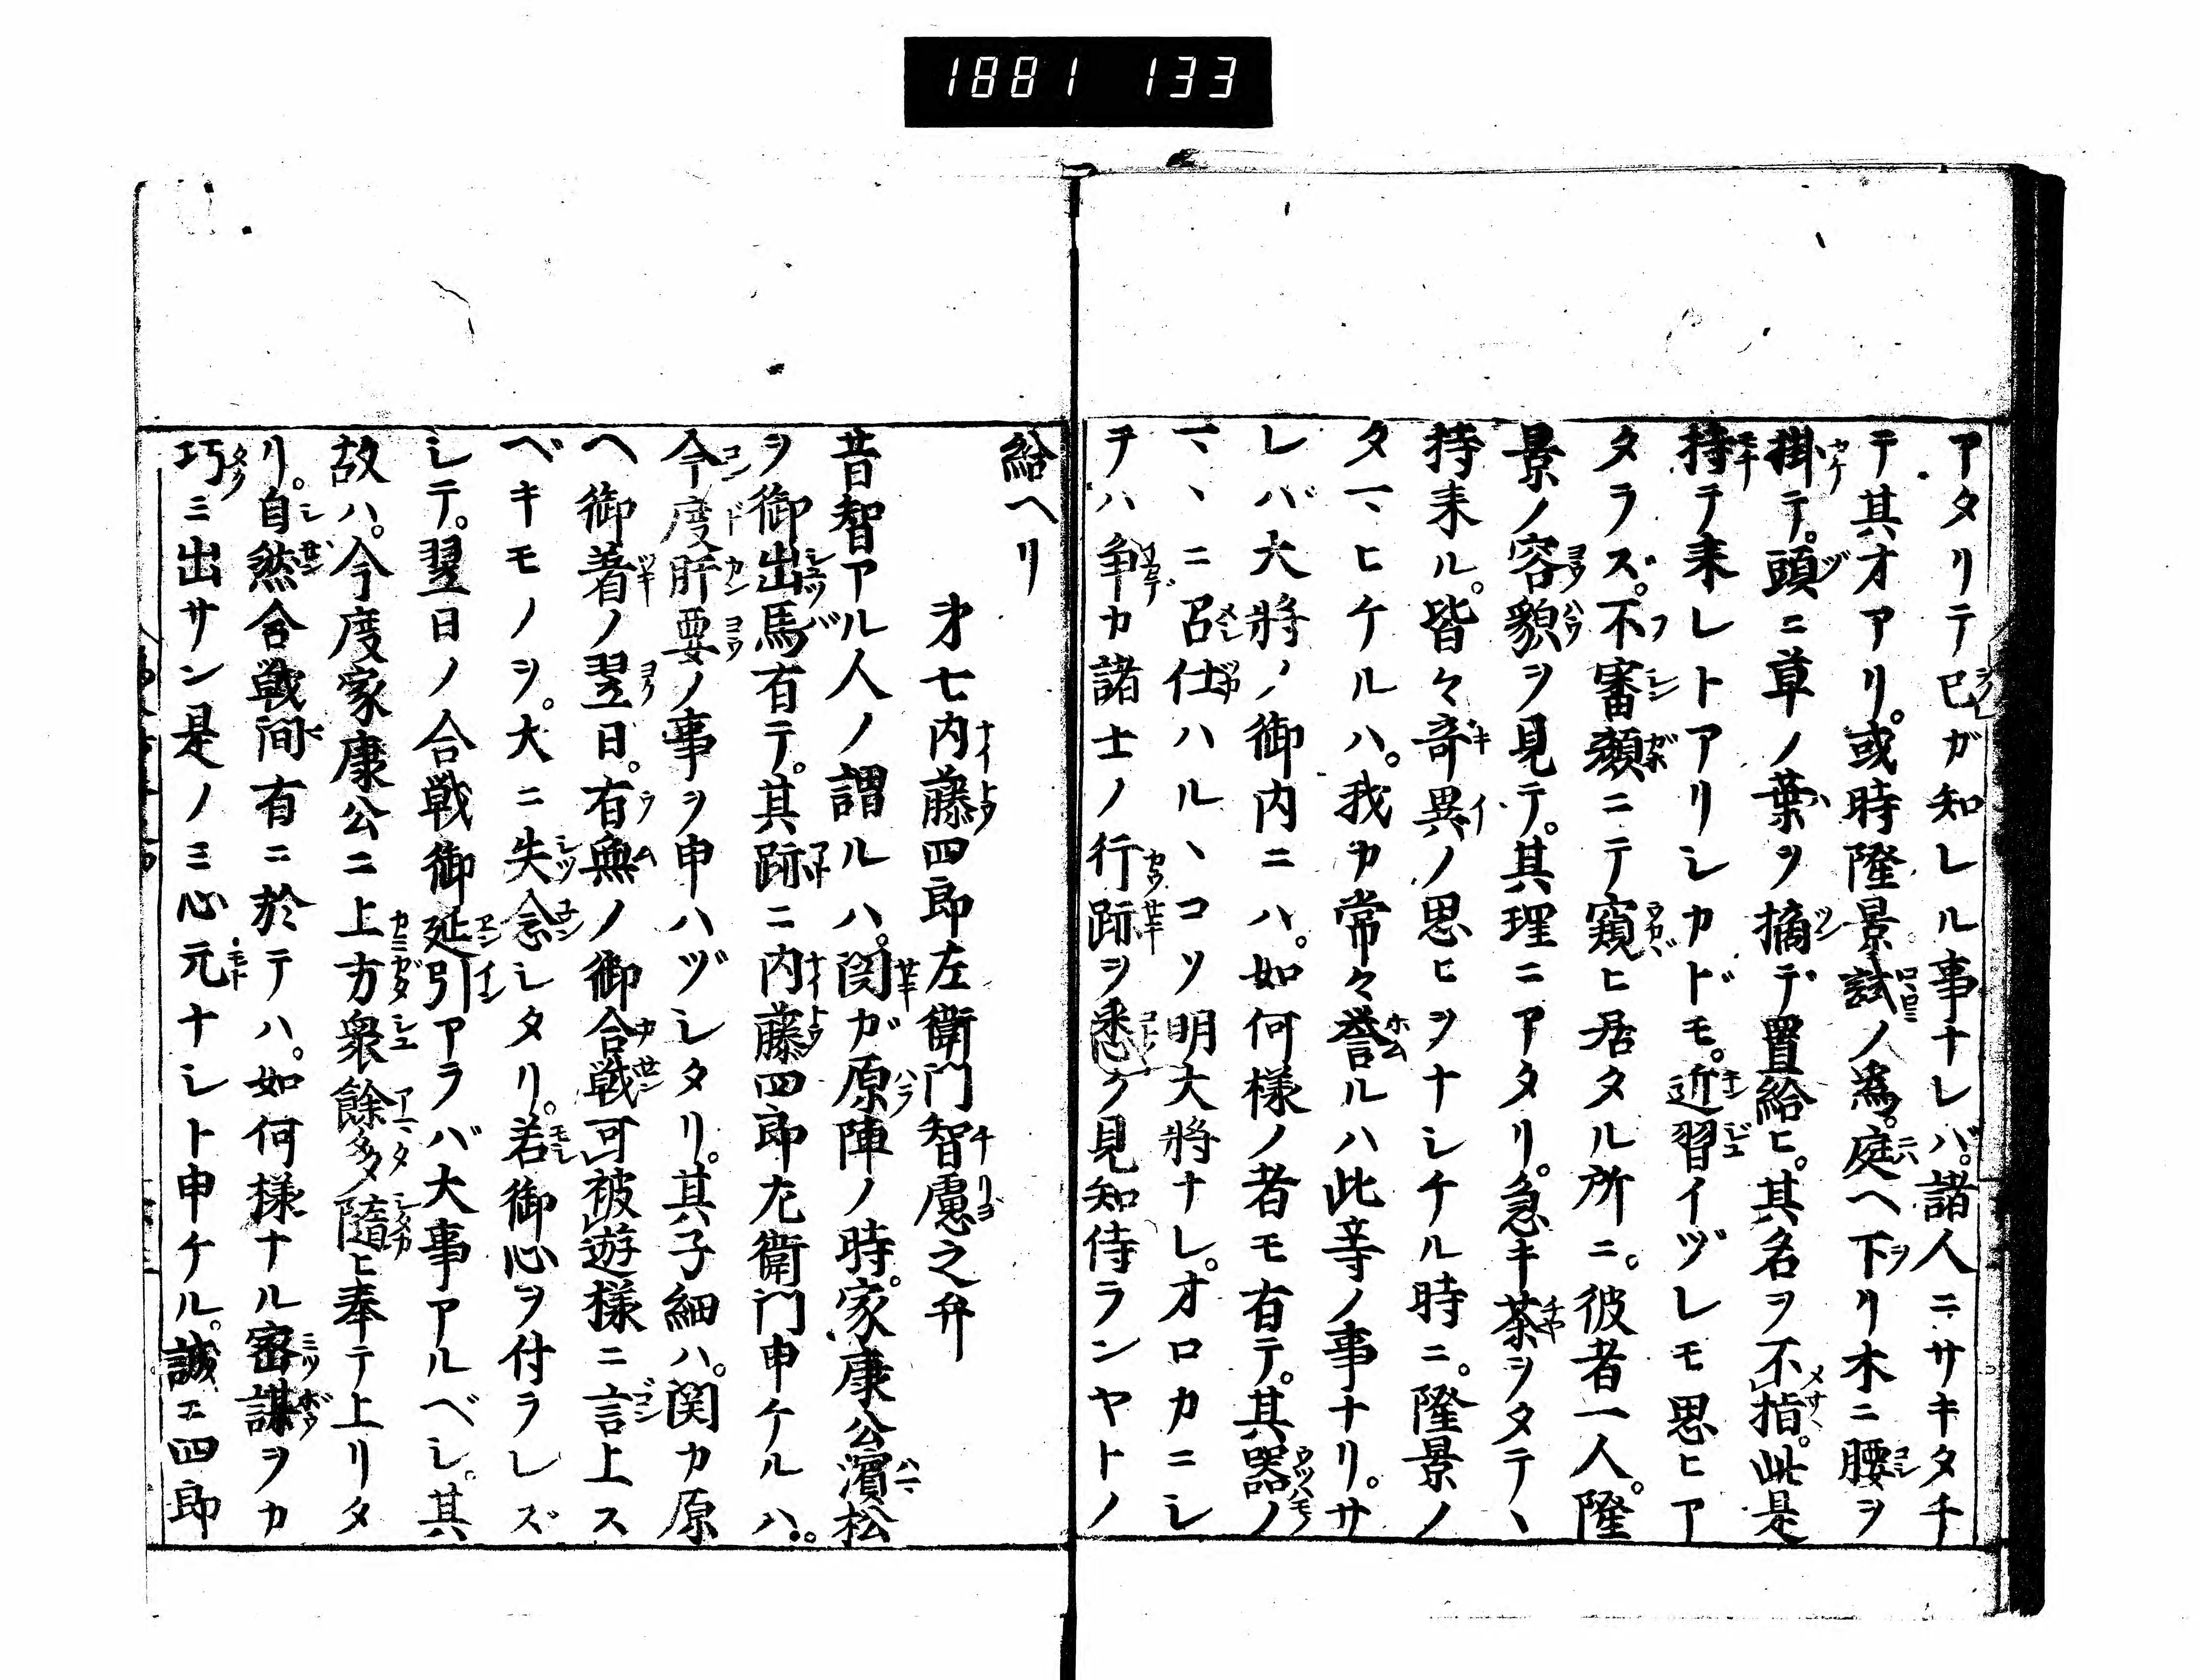 1881 133
アタリテ已ガ知レル事ナレバ。諸人ニサキタチ
テ其才アリ。或時隆景試ノ為。庭ヘ下リ木ニ腰ヲ
掛テ。頭ニ草ノ葉ヲ摘デ置給ヒ。其名ヲ不指。此是
持テ来レトアリシカドモ。近習イヅレモ思ヒア
タラズ。不審顔ニテ窺ヒ居タル所ニ。彼者一人。隆
景ノ容貌ヲ見テ。其理ニアタリ。急キ茶ヲタテヽ
持来ル。皆々奇異ノ思ヒヲナシケル時ニ。隆景ノ
タマヒケルハ。我カ常々誉ルハ此等ノ事ナリ。サ
レバ大将ノ御内ニハ。如何様ノ者モ有テ。其器ノ
マヽニ召仕ハルヽコソ明大将ナレ。オロカニシ
テハ争カ諸士ノ行跡ヲ悉ク見知侍ランヤトノ
給ヘリ
才七内藤四郎左衛門智慮之弁
昔智アル人ノ謂ルハ。関ガ原陣ノ時。家康公濱松
ヲ御出馬有テ。其跡ニ内藤四郎左衛門申ケルハ。
今度肝要ノ事ヲ申ハヅシタリ。其子細ハ。関カ原
ヘ御着ノ翌日。有無ノ御合戦可被遊様ニ言上ス
ベキモノヲ。大ニ失念シタリ。若御心ヲ付ラレズ
シテ。翌日ノ合戦御延引アラバ大事アルベシ。其
故ハ。今度家康公ニ上方衆餘多隨ヒ奉テ上リタ
リ。自然合戦間有ニ於テハ。如何様ナル密謀ヲカ
巧ミ出サン是ノミ心元ナシト申ケル。誠ニ四郎